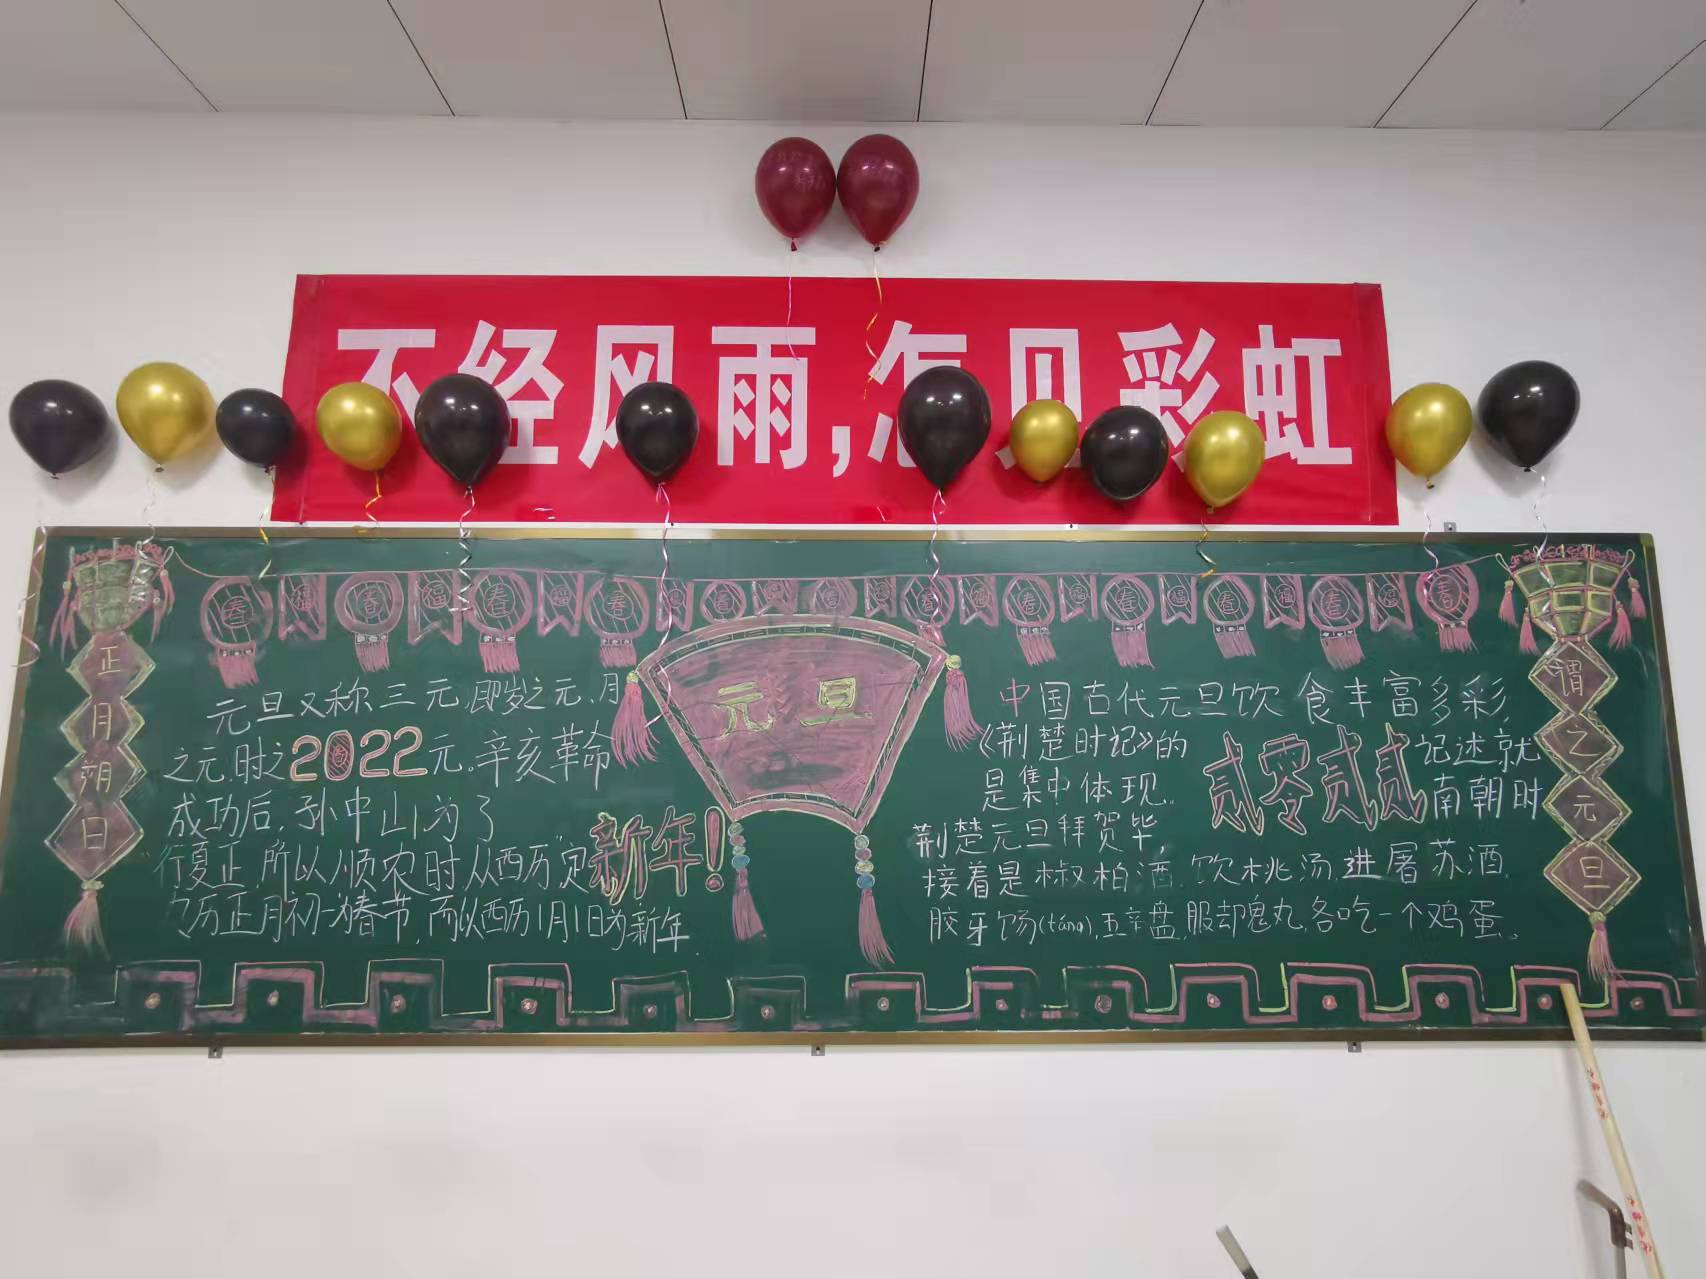 不经风雨,怎见彩虹
春 福 春 福 春 福 春 福 春 福 春 福 春 福 春 福 春 福 春 福 春 福 春
正月朔日
元旦又称三元,即岁之元,月
之元,时之2022元。辛亥革命
成功后,孙中山为了
"行夏正,所以顺农时,从西历"定
新年!
历正月初一为春节,而以西历1月1日为新年.
元旦
中国古代元旦饮食丰富多彩,
《荆楚时记》的
贰零贰贰
记述就
是集中体现。
南朝时
荆楚元旦拜贺毕,
接着是椒柏酒,饮桃汤,进屠苏酒,
胶牙饧(táng),五辛盘,服却鬼丸,各吃一个鸡蛋。
谓之元旦